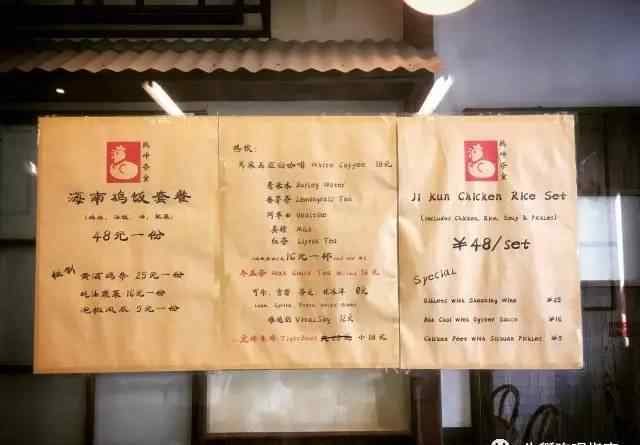 海南鸡饭套餐
48元一份
黄酒鸡杂 25元一份
蚝油蔬菜 16元一份
泡椒凤爪 5元一份
热饮:
马来西亚白咖啡 White Coffee 18元
薏米水 Barley Water
香茅茶 Lemongrass Tea
阿华田 Ovaltine
美禄 Milo
红茶 Lipton Tea
16元一杯
冬瓜茶 Wax Gourd Tea 16元
可乐, 雪碧, 芬达,
维他奶 VitaSoy 12元
虎牌生啤 Tiger Beer
Ji Kun Chicken Rice Set
(includes Chicken, Rice, Soup & Pickles)
¥48/set
Special
Giblets with Shaoxing Wine ¥25
Choi with Oyster Sauce ¥16
Chicken Feet with Sichuan Pickles ¥5